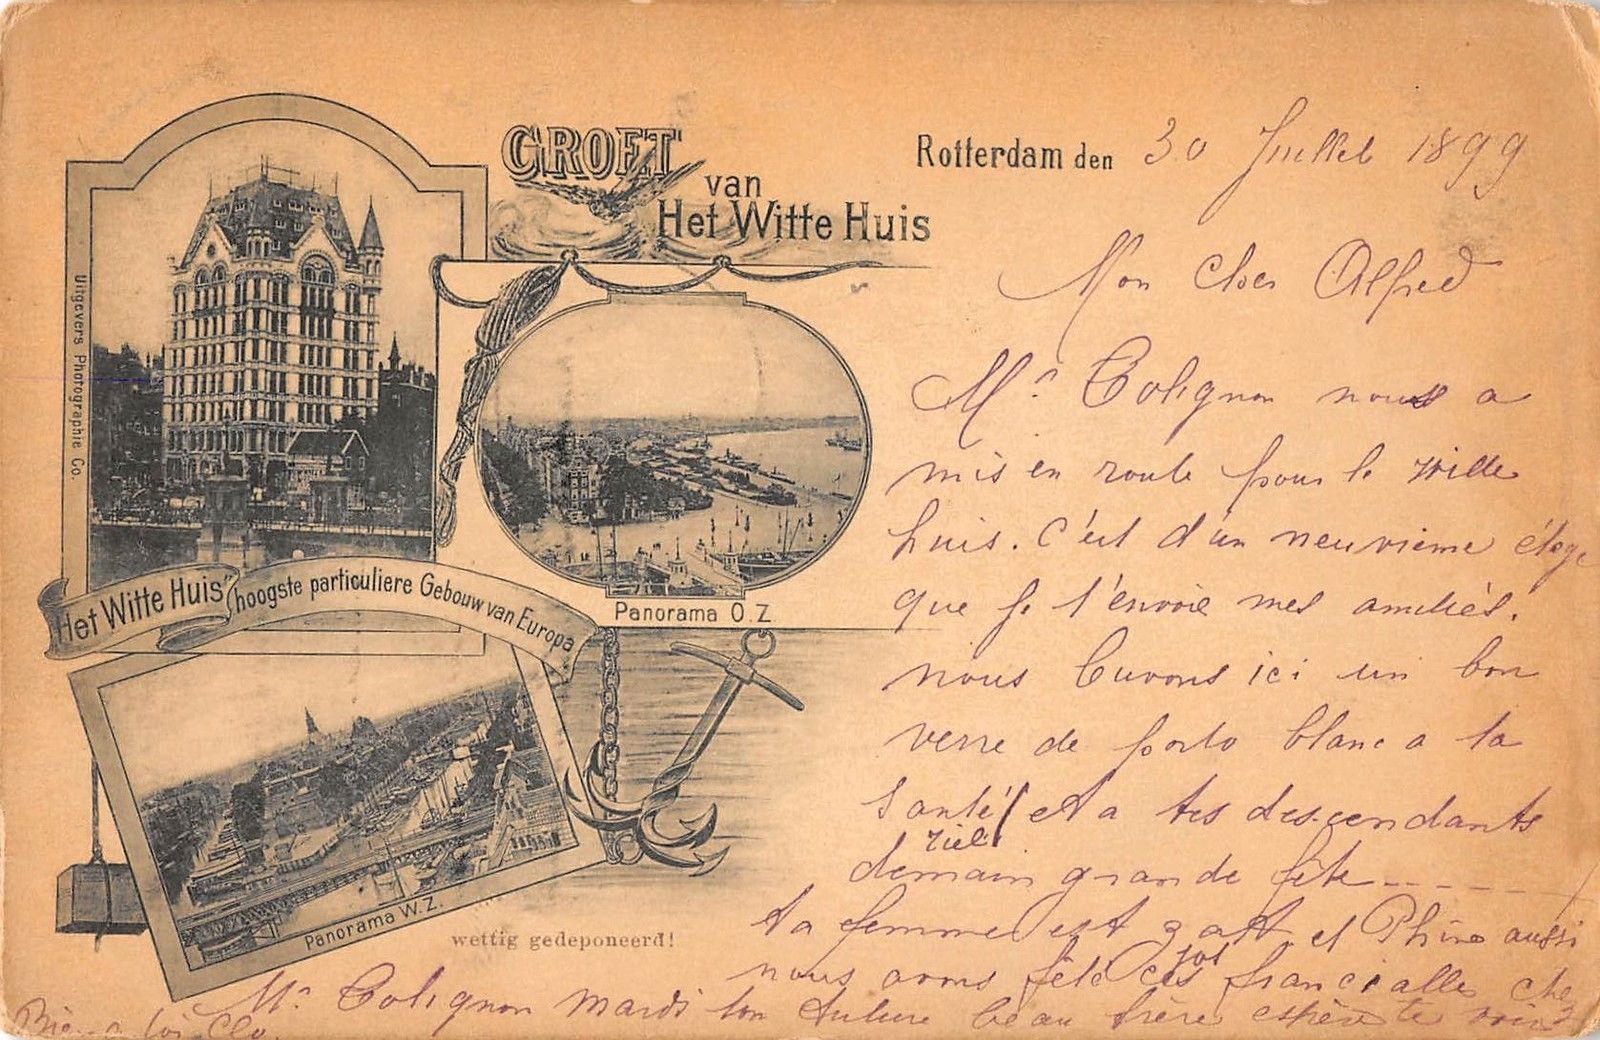 GROET
van
Het Witte Huis
Rotterdam den 30 Juillet 1899
Uitgevers Photographie Co.
"Het Witte Huis" hoogste particuliere Gebouw van Europa
Panorama O.Z
Panorama W.Z.
wettig gedeponeerd!
Mon cher Alfred
Mr Colignon nous a
mis en route pour le witte
huis. c'est d'un neuvieme étage
que je t'envoie mes amitiés.
nous buvons ici un bon
verre de porto blanc a ta
santé et a tes descendants
demain grande fête
ta femme est et aussi
nous avons fêté ces chez
Mr Colignon mardi ton beau frère espère te voir